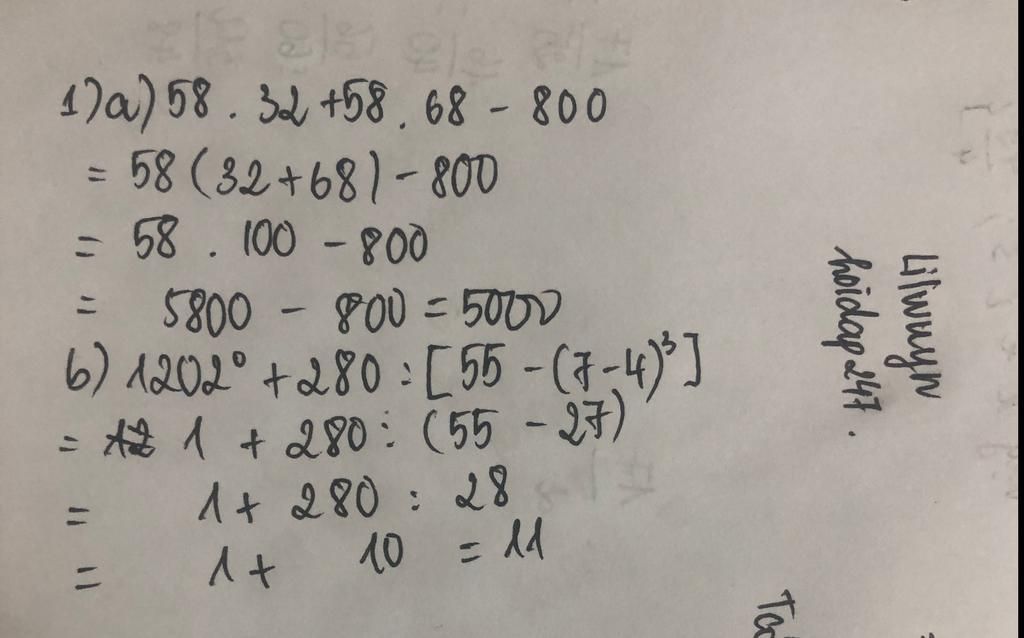 1) a) 58 . 32 + 58 . 68 - 800
= 58 (32 + 68) - 800
= 58 . 100 - 800
= 5800 - 800 = 5000
b) 1202⁰ + 280 : [55 - (7 - 4)³]
= 1 + 280 : (55 - 27)
= 1 + 280 : 28
= 1 + 10 = 11
hoidap247.